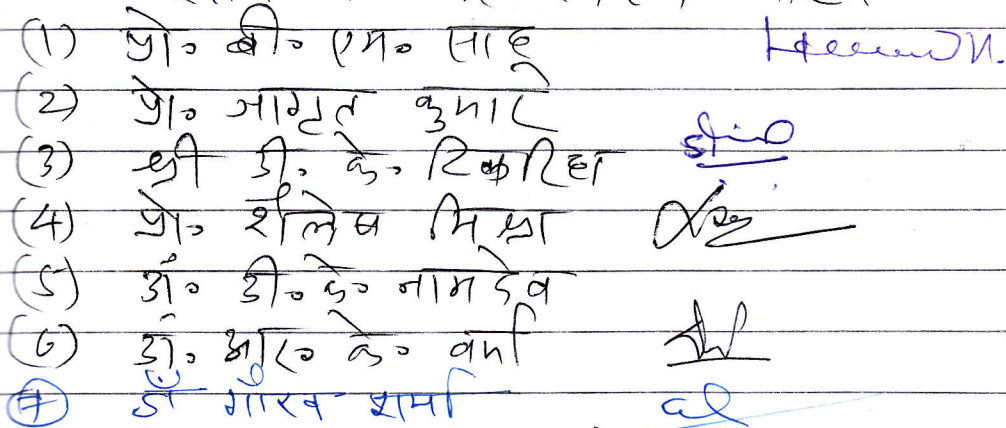 (1) प्रो॰ बी॰ एम॰ साहू
(2) प्रो॰ जागृत कुमार
(3) श्री डी. के॰ टिकरिहा
(4) प्रो॰ शैलेष मिश्रा
(5) डॉ॰ डी॰ के॰ नामदेव
(6) डॉ॰ आर॰ के॰ वर्मा
(7) डॉ गौरव शर्मा